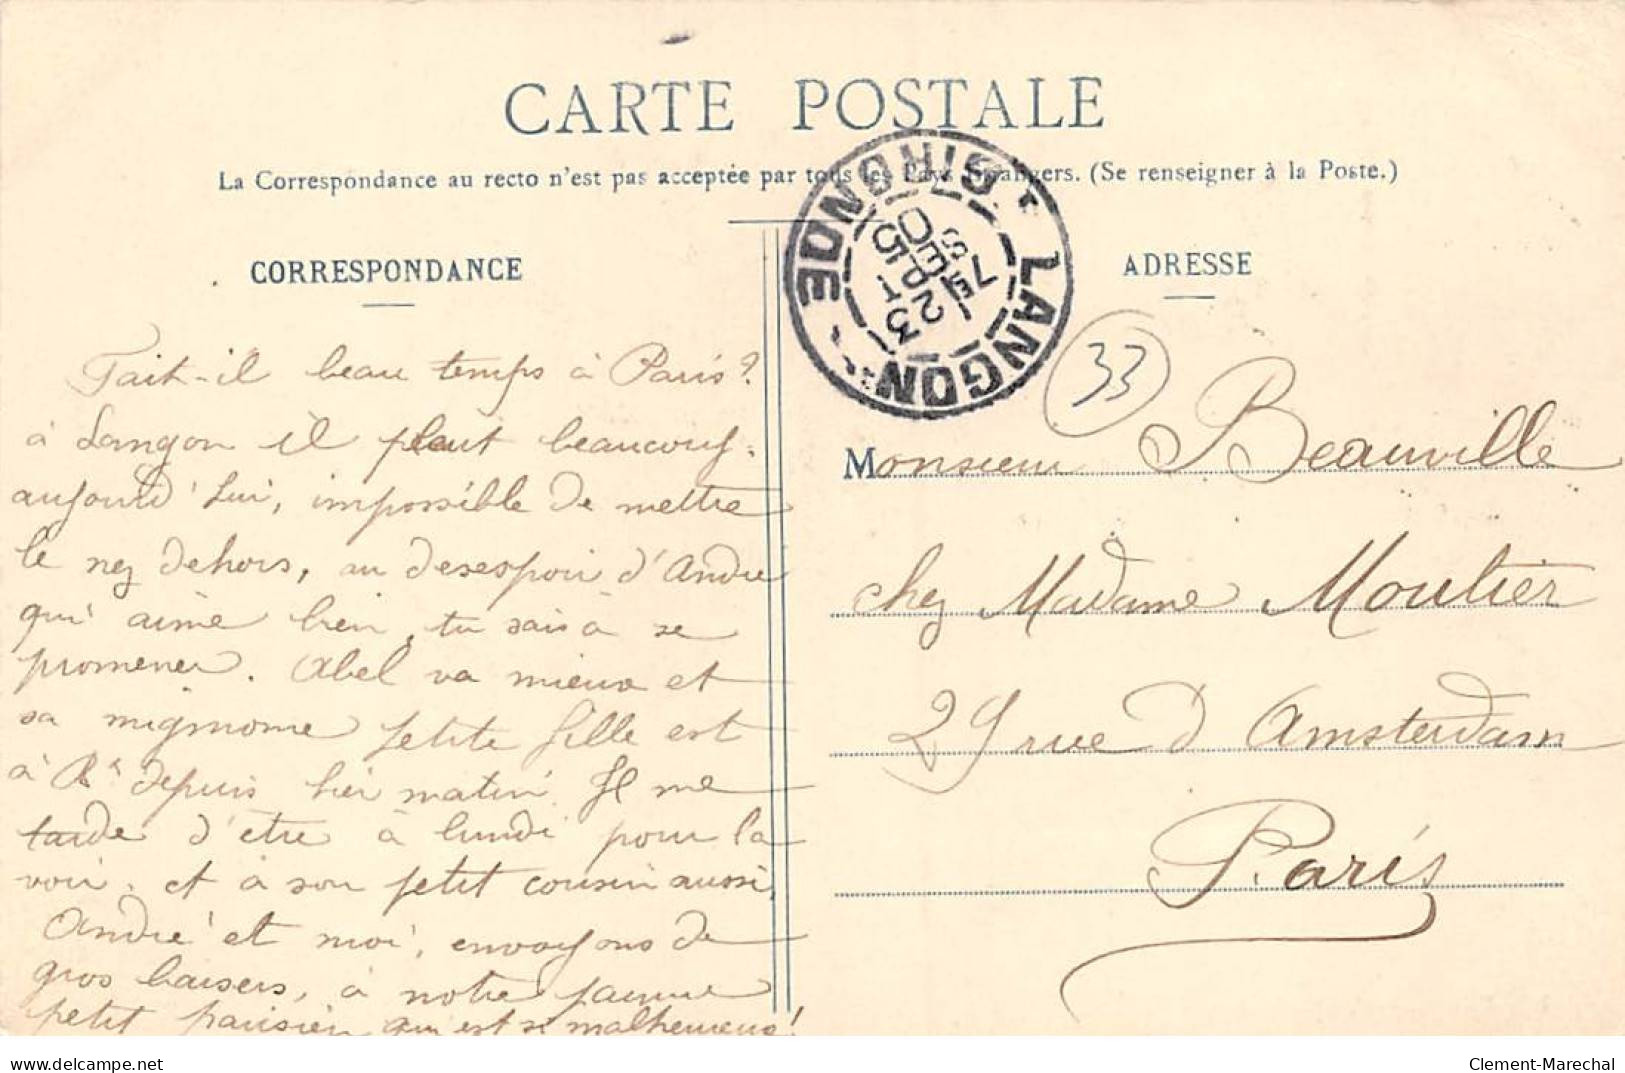 CARTE POSTALE
La Correspondance au recto n'est pas acceptée par tous les Pays Etrangers. (Se renseigner à la Poste.)
CORRESPONDANCE
Fait-il beau temps à Paris?
à Langon il pleut beaucoup
aujourd'hui, impossible de mettre
le nez dehors, au desespoir d'André
qui aime bien, tu sais à se
promener. Abel va mieux et
sa mignonne petite fille est
à depuis hier matin. Il me
tarde d'être à lundi pour la
voir, et à son petit cousin aussi,
André et moi, envoyons de
gros baisers, à notre pauvre
petit parisien qui est si malheureux!
LANGON
GIRONDE
7E
23
SEPT
05
33
ADRESSE
Monsieur Beauville
chez Madame Moutier
29 rue d'Amsterdam
Paris
delcampe.net
Clement-Marechal